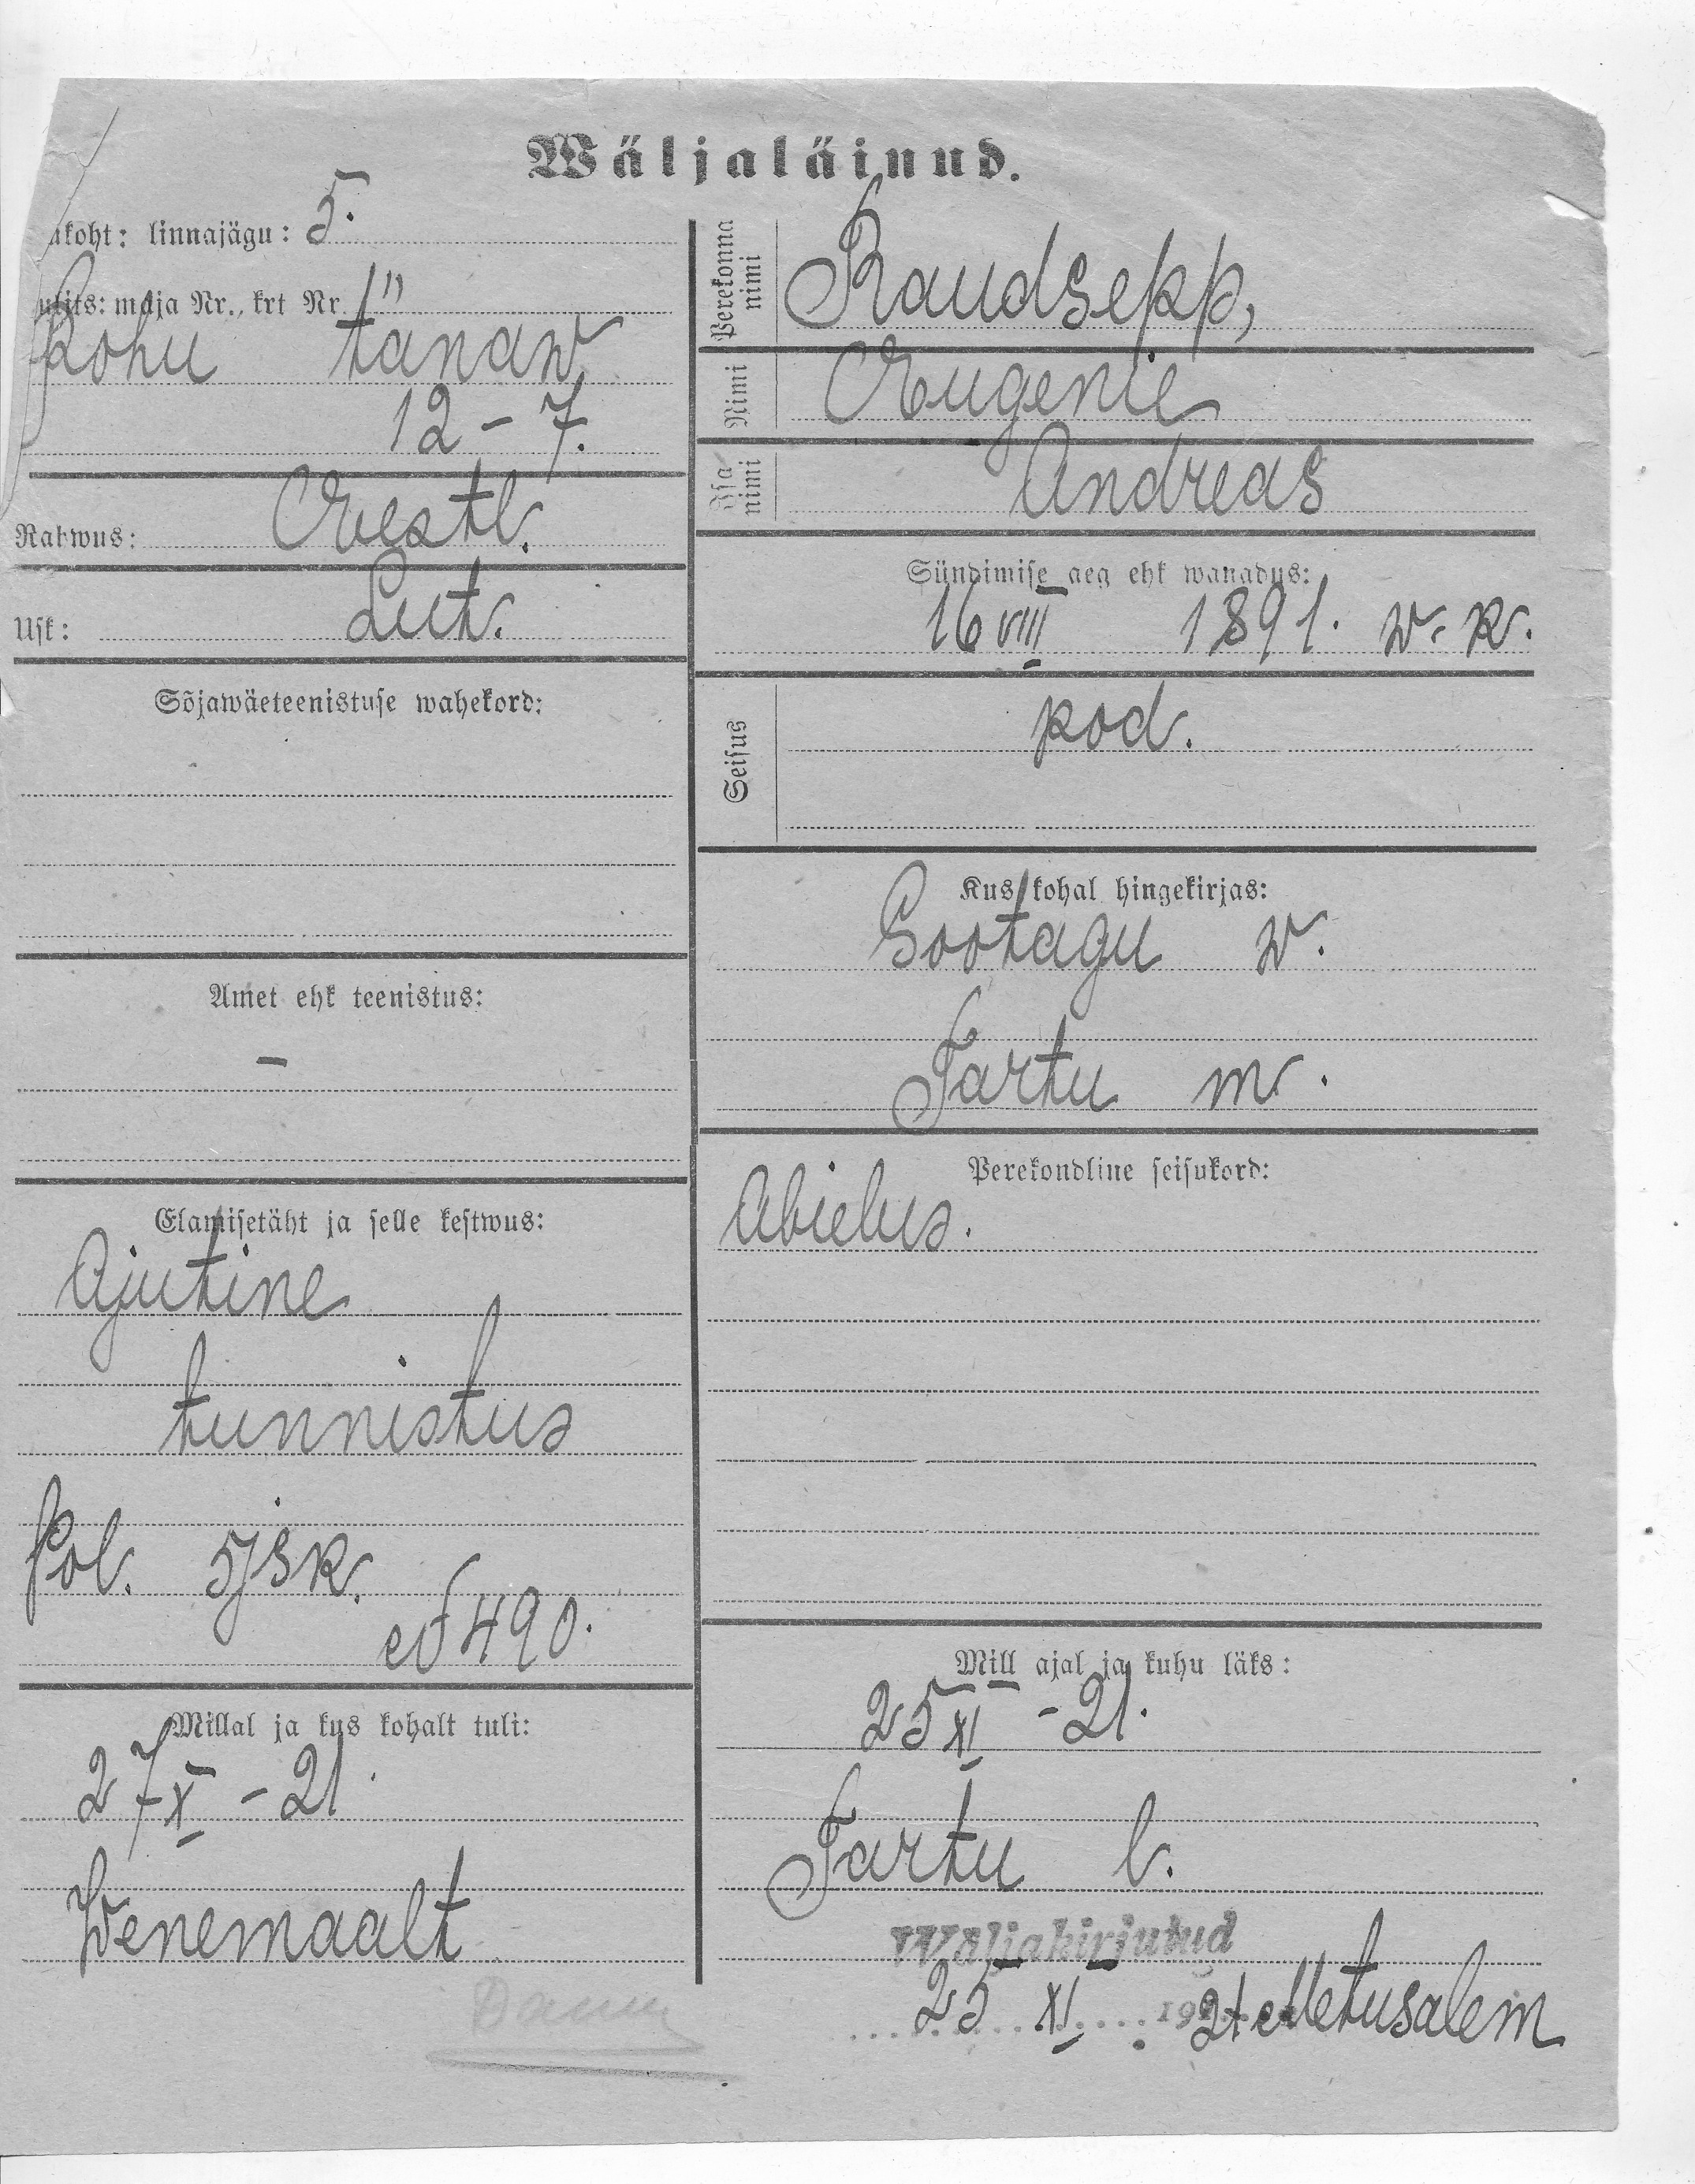 Wäljaläinud.
ukoht: linnajägu: 5.
ulits: maja Nr., krt Nr.
Rohu tänaw
12 – 7.
Rahwus: Eestl.
Usk: Lut.
Sõjawäeteenistuse wahekord:
Amet ehk teenistus:
–
Elamisetäht ja selle kestwus:
Ajutine
tunnistus
Pol. 5 jsk.
№ 490.
Millal ja kus kohalt tuli:
27 X – 21.
Wenemaalt
Perekonna nimi Raudsepp,
Nimi Eugenie
Isa nimi Andreas
Sündimise aeg ehk wanadus:
16 VIII 1891. w. k.
Seisus kod.
Kus kohal hingekirjas:
Sootagu w.
Tartu m.
Perekondline seisukord:
Abielus.
Mill ajal ja kuhu läks:
25 XI – 21.
Tartu l.
Wäljakirjutud
25 XI 1921 Metusalem